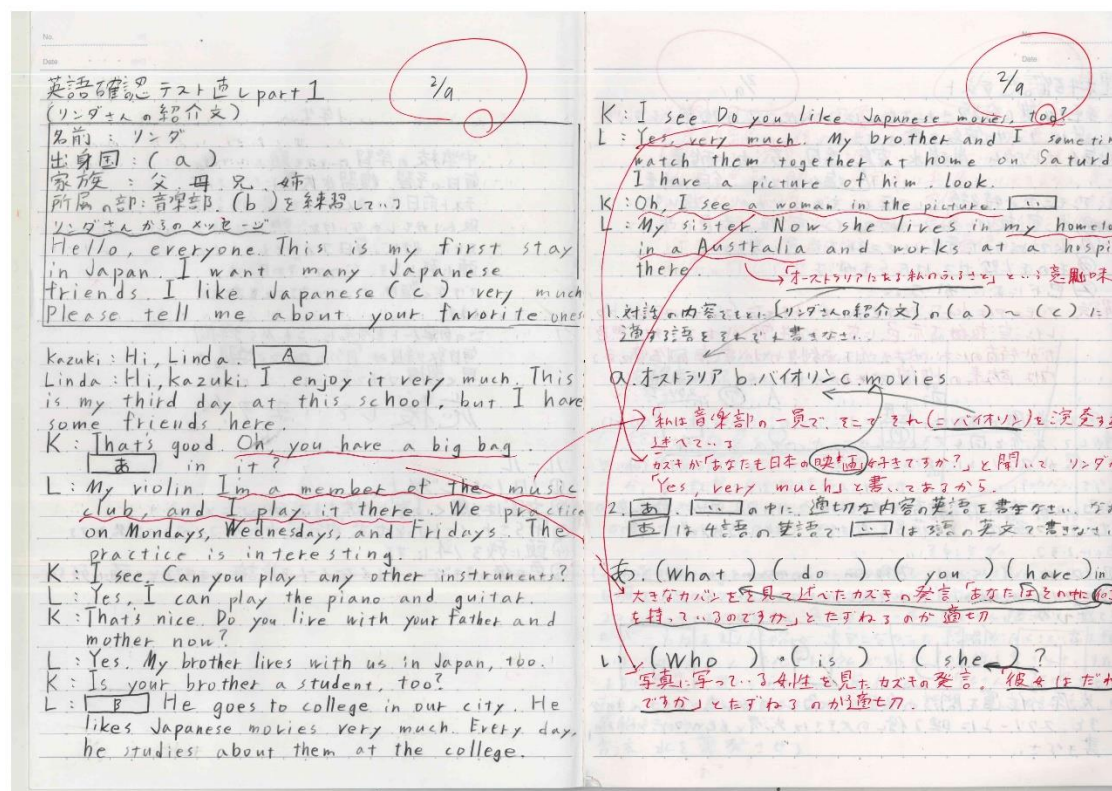 No.
Date
英語確認テスト直しpart 1
2/9
(リンダさんの紹介文)
名前 : リンダ
出身国 : ( a )
家族 : 父 母 兄 姉
所属の部 : 音楽部. (b) を練習している
リンダさんからのメッセージ
Hello, everyone. This is my first stay
in Japan. I want many Japanese
friends. I like Japanese (c) very much
Please tell me about your favorite ones
Kazuki : Hi, Linda A
Linda : Hi, Kazuki. I enjoy it very much. This
is my third day at this school, but I have
some friends here.
K : That's good. Oh, you have a big bag.
あ in it?
L : My violin. I'm a member of the music
club, and I play it there. We practice
on Mondays, Wednesdays, and Fridays. The
practice is interesting.
K : I see. Can you play any other instruments?
L : Yes, I can play the piano and guitar.
K : That's nice. Do you live with your father and
mother now?
L : Yes. My brother lives with us in Japan, too.
K : Is your brother a student, too?
L : B He goes to college in our city. He
likes Japanese movies very much. Every day,
he studies about them at the college.
Date
2/9
K : I see. Do you like Japanese movies, too?
L : Yes, very much. My brother and I sometim
watch them together at home on Saturd
I have a picture of him. look.
K : Oh, I see a woman in the picture. い
L : My sister. Now she lives in my hometo
in a Australia and works at a hospi
there.
「オーストラリアにある私のふるさと」という意味
1. 対話の内容をもとに [リンダさんの紹介文] の (a) ~ (c) に
適する語をそれぞれ書きなさい.
a. オーストラリア b. バイオリン c. movies
「私は音楽部の一員で, そこで それ (= バイオリン) を演奏する
述べている
カズキが「あなたも日本の映画好きですか?」と聞いて, リンダが
「Yes, very much」と書いてあるから.
2. あ い の中に, 適切な内容の英語を書きなさい. なお
あ は4語の英語で い は3語の英文で書きなさい
あ. (What) (do) (you) (have) in
大きなカバンを見て述べたカズキの発言「あなたはその中に何
を持っているのですか」とたずねるのが適切
い. (Who) (is) (she) ?
写真に写っている女性を見たカズキの発言. 「彼女はだれ
ですか」とたずねるのが適切